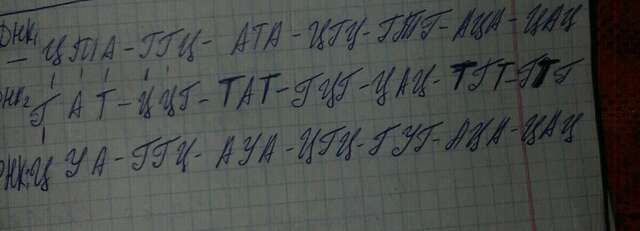 ДНК1 ЦТА - ГГЦ - АТА - ЦГЦ - ГТГ - АЦА - ЦАЦ
НК2 ГАТ - ЦЦГ - ТАТ - ГЦГ - ЦАЦ - ТГТ - ГТГ
РНК: ЦУА - ГГЦ - АУА - ЦГЦ - ГУГ - АЦА - ЦАЦ